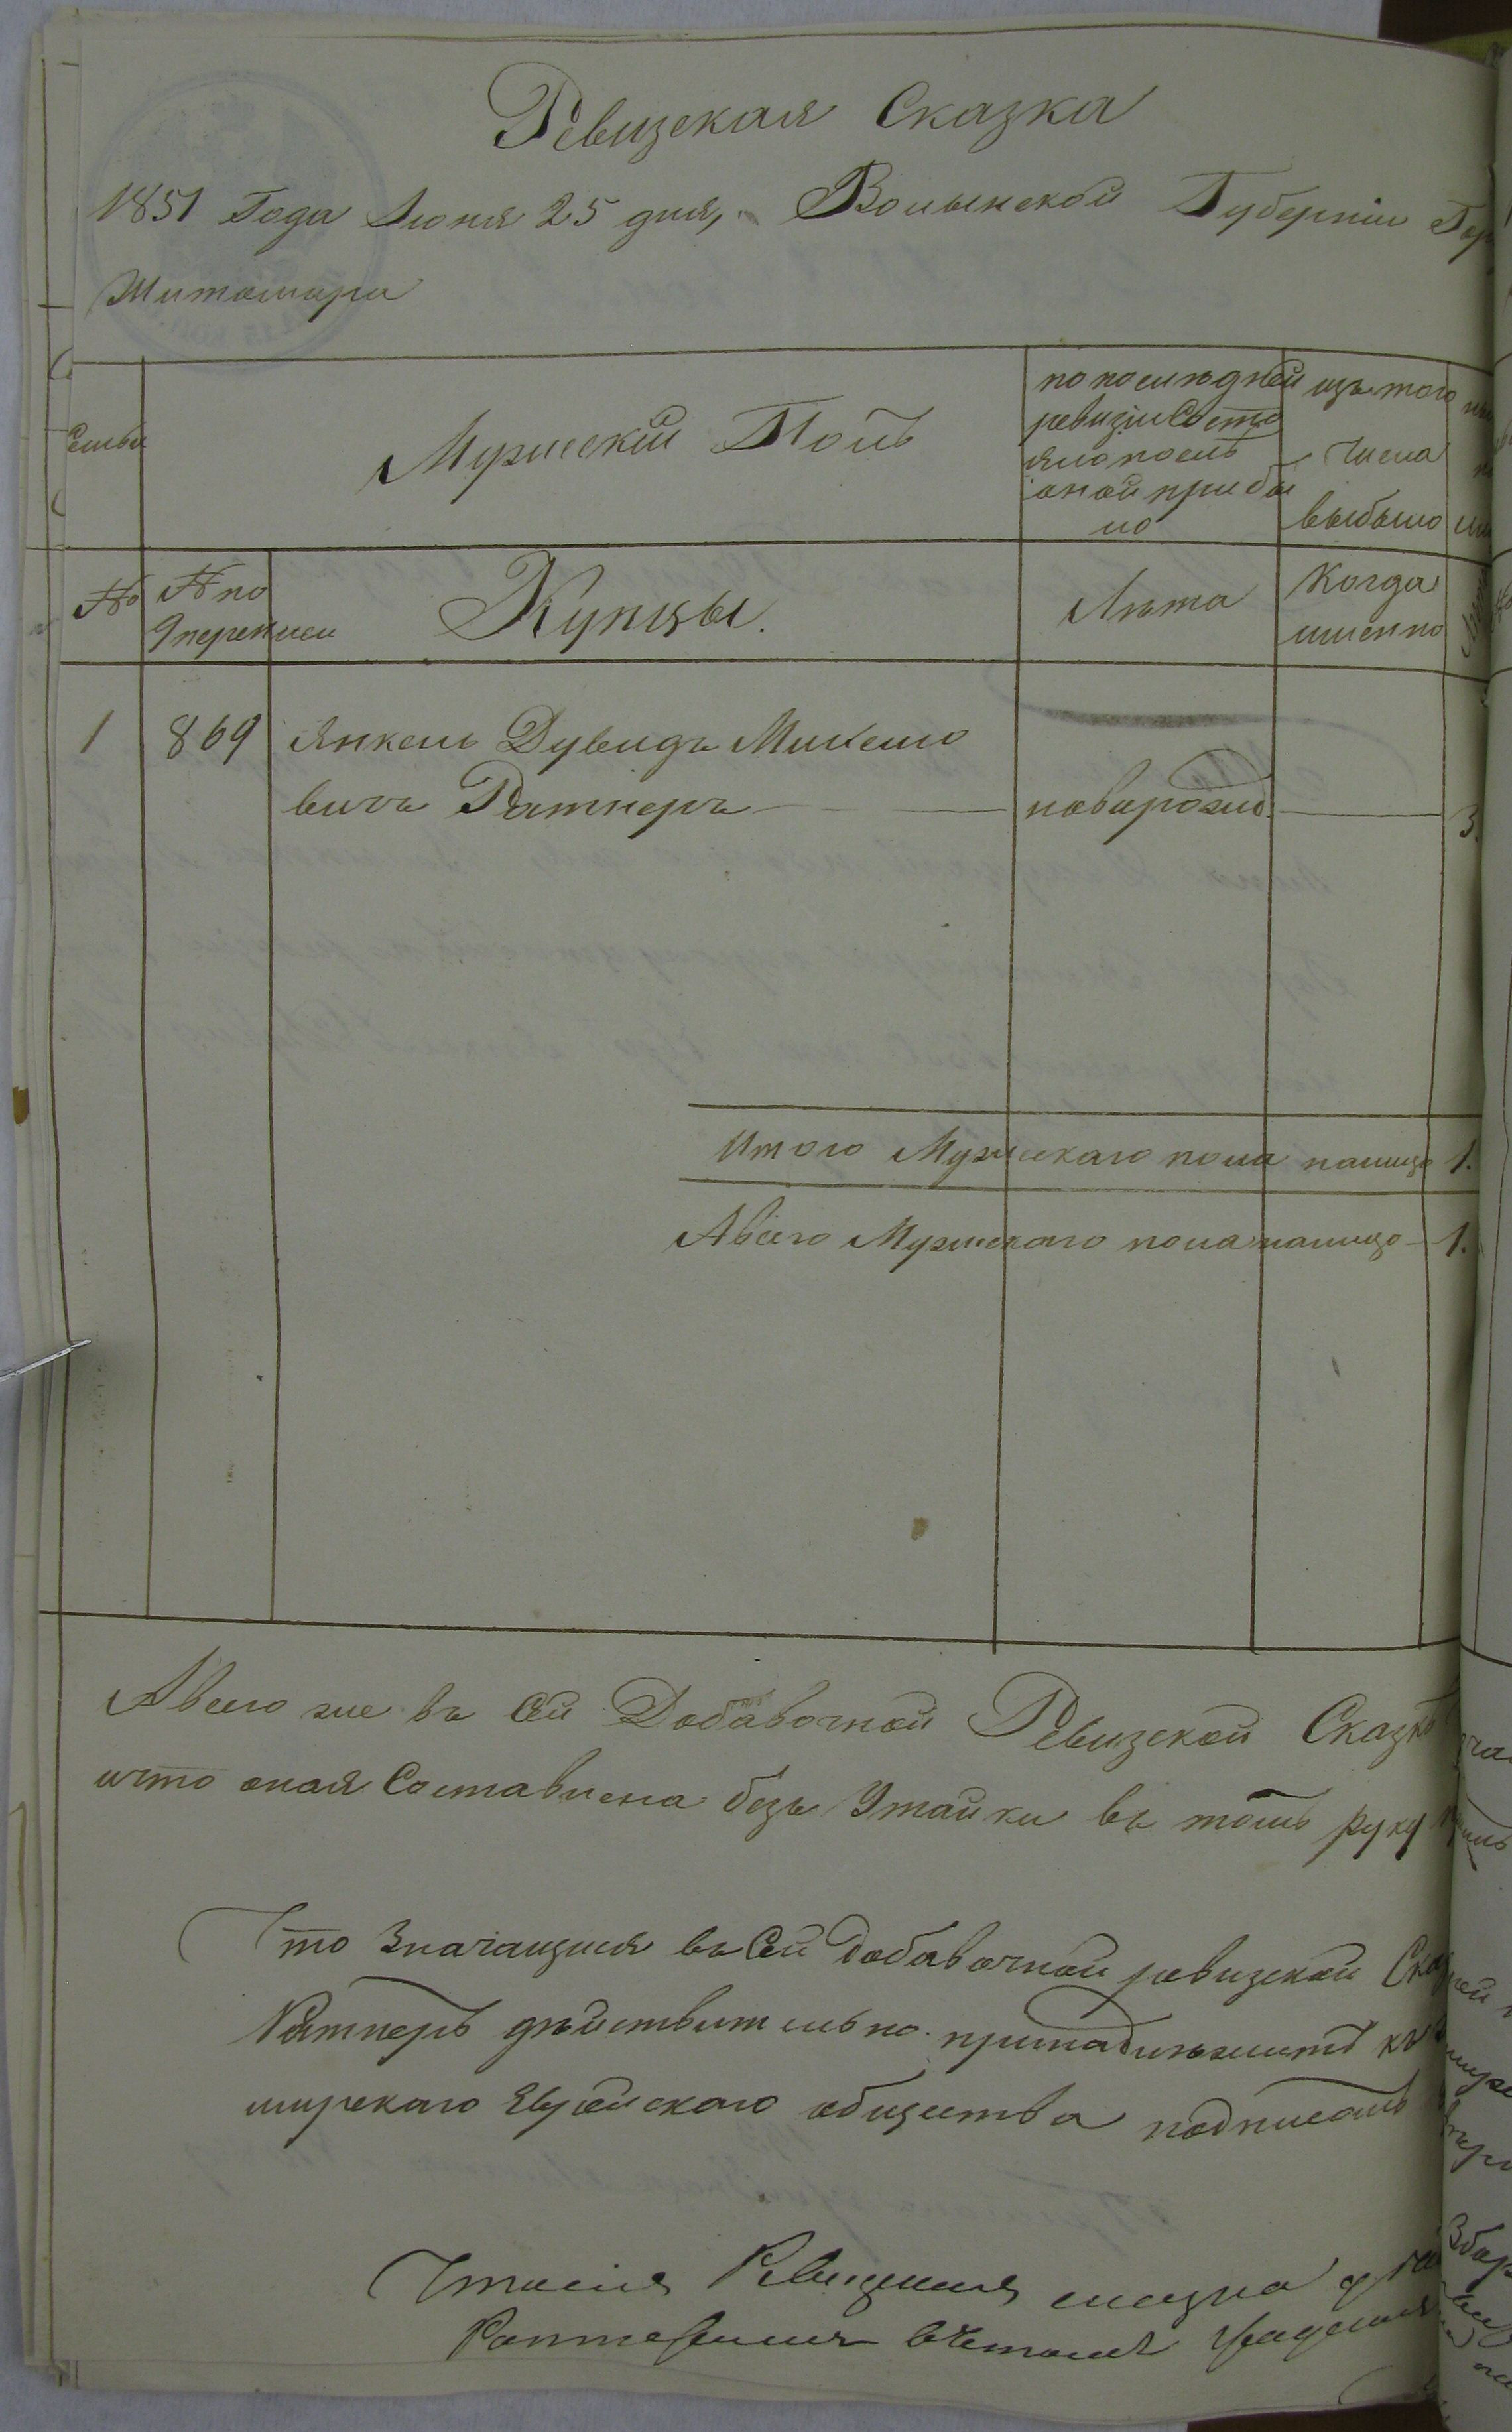 Ревизская Сказка
1851 Года Июня 25 дня, Волынской Губерніи
Житомира
Семьи
Мужескій Полъ
по последней
ревизіи Состо
яло послѣ
оной прибы
ло
изъ того
числа
выбыло
№
№ по
9 переписи
Купцы.
Лѣта
Когда
именно
1
869
Янкель Дувидъ Михелио
вичъ Ратнеръ
новорожд.
3.
Итого Мужескаго пола налицо 1.
Авсего Мужескаго пола налицо 1.
Авсего же въ Сей Добавочной Ревизской Сказкѣ
ичто оная Составлена безъ Утайки въ томъ руку
Что Значащися въ Сей Добавочной ревизской
Ратнеръ дѣйствительно принадлѣжитъ къ
мирскаго Еврейскаго общества подписомъ
Что сія Ревизская сказка